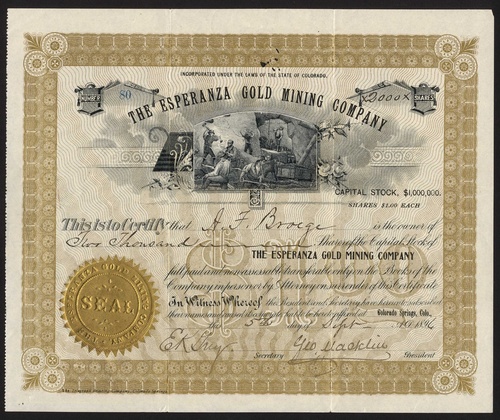 INCORPORATED UNDER THE LAWS OF THE STATE OF COLORADO.
NUMBER
80
THE ESPERANZA GOLD MINING COMPANY
x2000x
SHARES
CAPITAL STOCK, $1,000,000.
SHARES $1.00 EACH
This Is to Certify that A. F. Broege is the owner of
Two Thousand Shares of the Capital Stock of
THE ESPERANZA GOLD MINING COMPANY
full paid and non-assessable transferable only on the Books of the
Company in person or by Attorney on surrender of this Certificate
In Witness Whereof the President and Secretary have hereunto subscribed
their names and caused the corporate Seal to be hereto affixed at Colorado Springs, Colo.,
this 5th day of Sept 1896
Secretary
President
ESPERANZA GOLD MINING COMPANY
SEAL